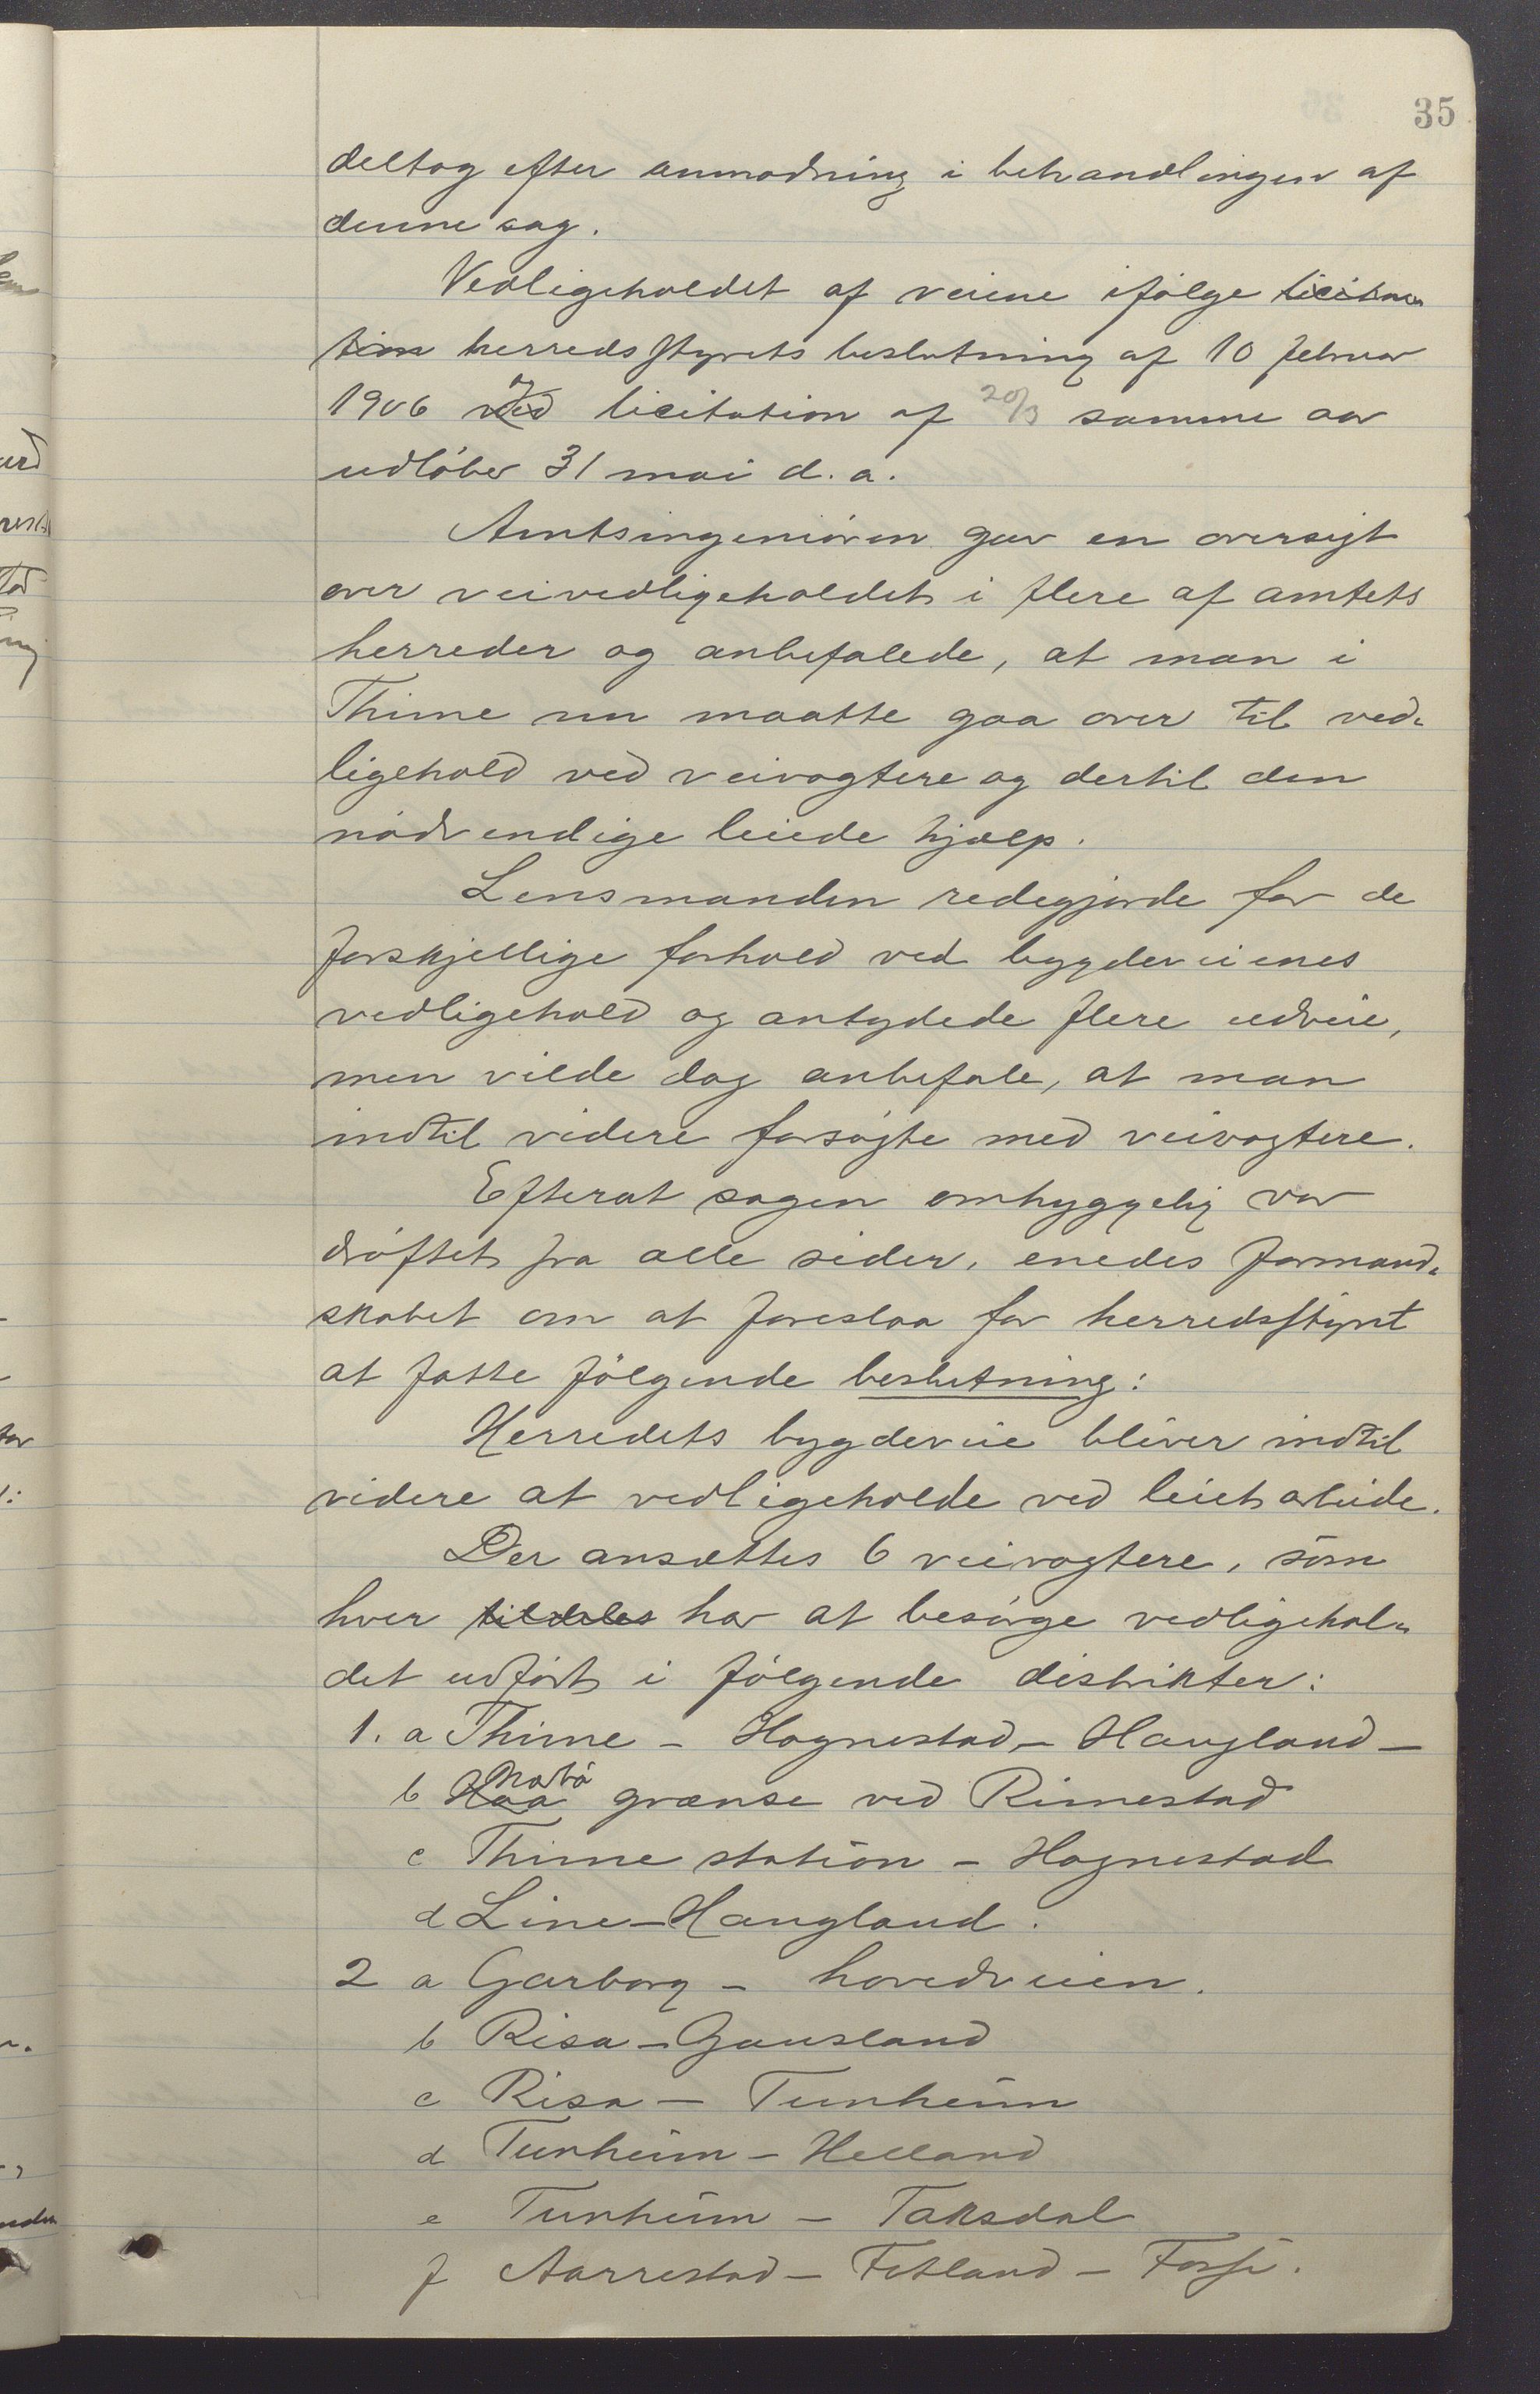 35
deltog efter anmodning i behandlingen af
denne sag.
Vedligeholdet af veiene ifølge licitna
tion herredsstyrets beslutning af 10 februar
1906 ved og licitation af 20/3 samme aar
udløber 31 mai d. a.
Amtsingeniøren gav en oversigt
over veivedligeholdet i flere af amtets
herreder og anbefalede, at man i
Thime nu maatte gaa over til ved-
ligehold ved veivogtere og dertil den
nødvendige leiede hjælp.
Lensmanden redegjorde for de
forskjellige forhold ved bygdeveienes
vedligehold og antydede flere udveie,
men vilde dog anbefale, at man
indtil videre forsøgte med veivogtere.
Efterat sagen omhyggelig var
drøftet fra alle sider, enedes formand-
skabet om at foreslaa for herredsstyret
at fatte følgende beslutning:
Herredets bygdeveie bliver indtil
videre at vedligeholde ved leiet arbeide.
Der ansættes 6 veivogtere, som
hver tildeles har at besørge vedligehol-
det udført i følgende distrikter:
1. a Thime - Hognestad - Haugland -
b Haa Narbø grænse ved Rimestad
c Thime station - Hognestad
d Line - Haugland.
2 a Garborg - hovedveien.
b Risa - Gausland
c Risa - Tunheim
d Tunheim - Helland
e Tunheim - Taksdal
f Aarrestad - Fotland - Fosse.